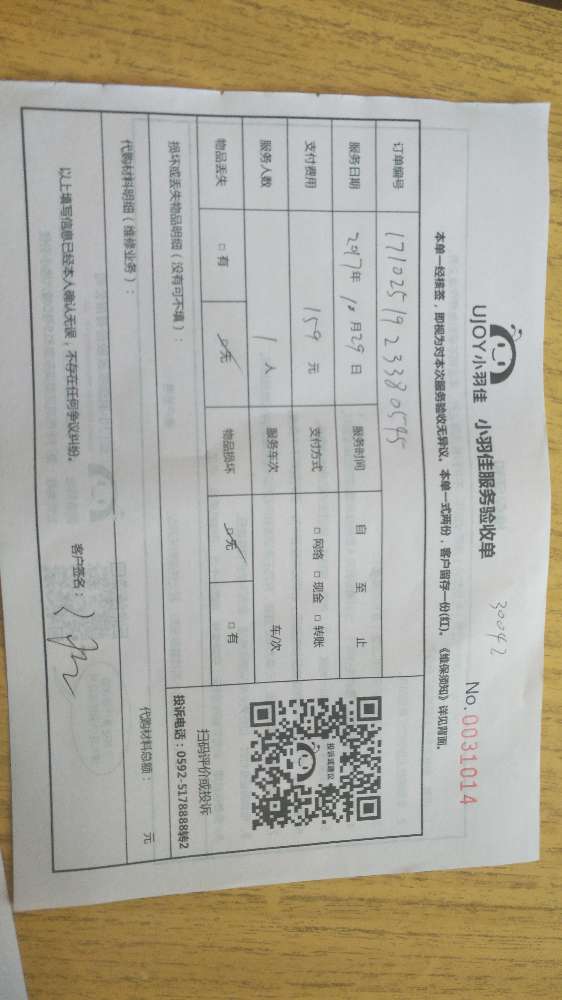 UJOY小羽佳 小羽佳服务验收单
30042
No.0031014
本单一经横签,即视为对本次服务验收无异议。本单一式两份,客户留存一份(红)。《维保须知》详见背面。
订单编号 17102519233805​95
服务日期 2017年 10月29日 服务时间 自 至 止
支付费用 159 元 支付方式 □网络 □现金 □转账
服务人数 1 人 服务车次 车/次
物品丢失 □有 □无 物品损坏 □无 □有
投诉或建议
扫码评价或投诉
投诉电话:0592-5178888转2
损坏或丢失物品明细(没有可不填):
代购材料明细(维修业务): 代购材料总额: 元
以上填写信息已经本人确认无误,不存在任何争议纠纷。 客户签名: